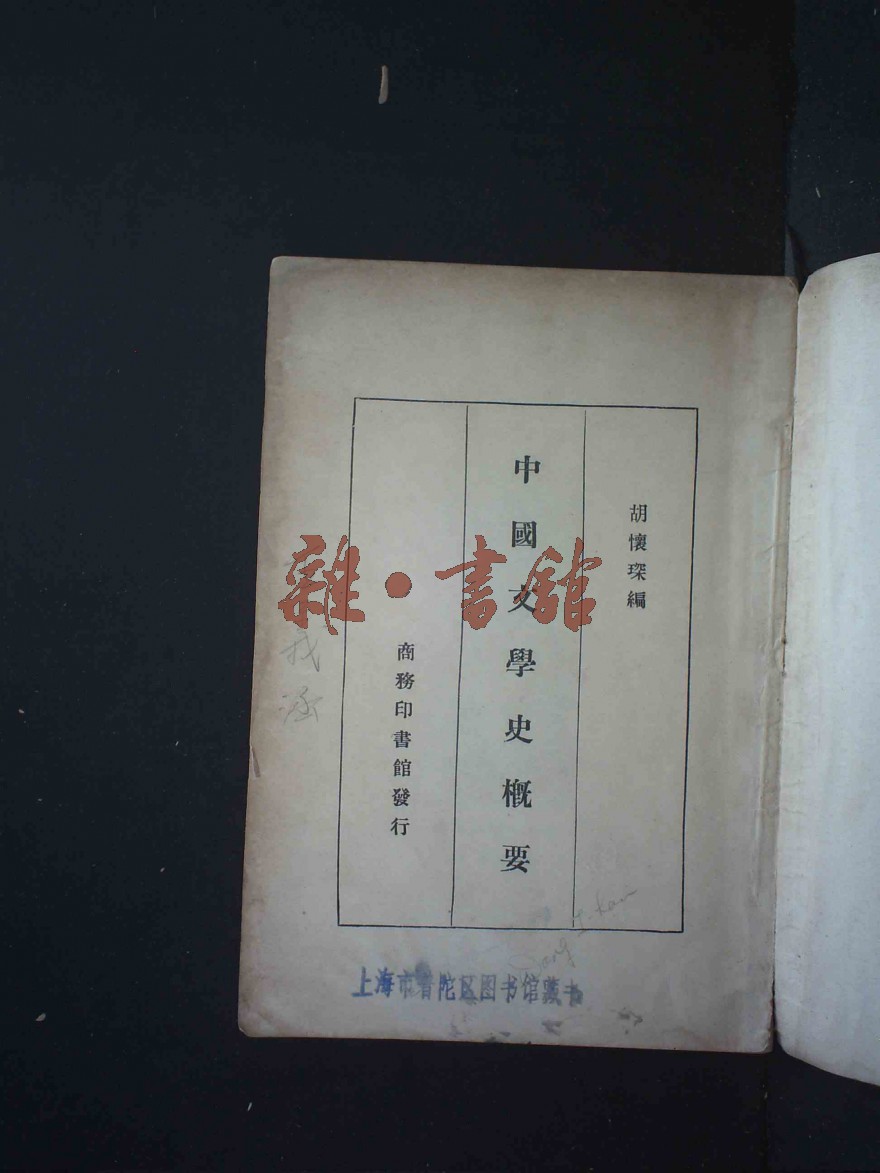 胡懷琛編
中國文學史概要
商務印書館發行
雜·書館
上海市普陀区图书馆藏书